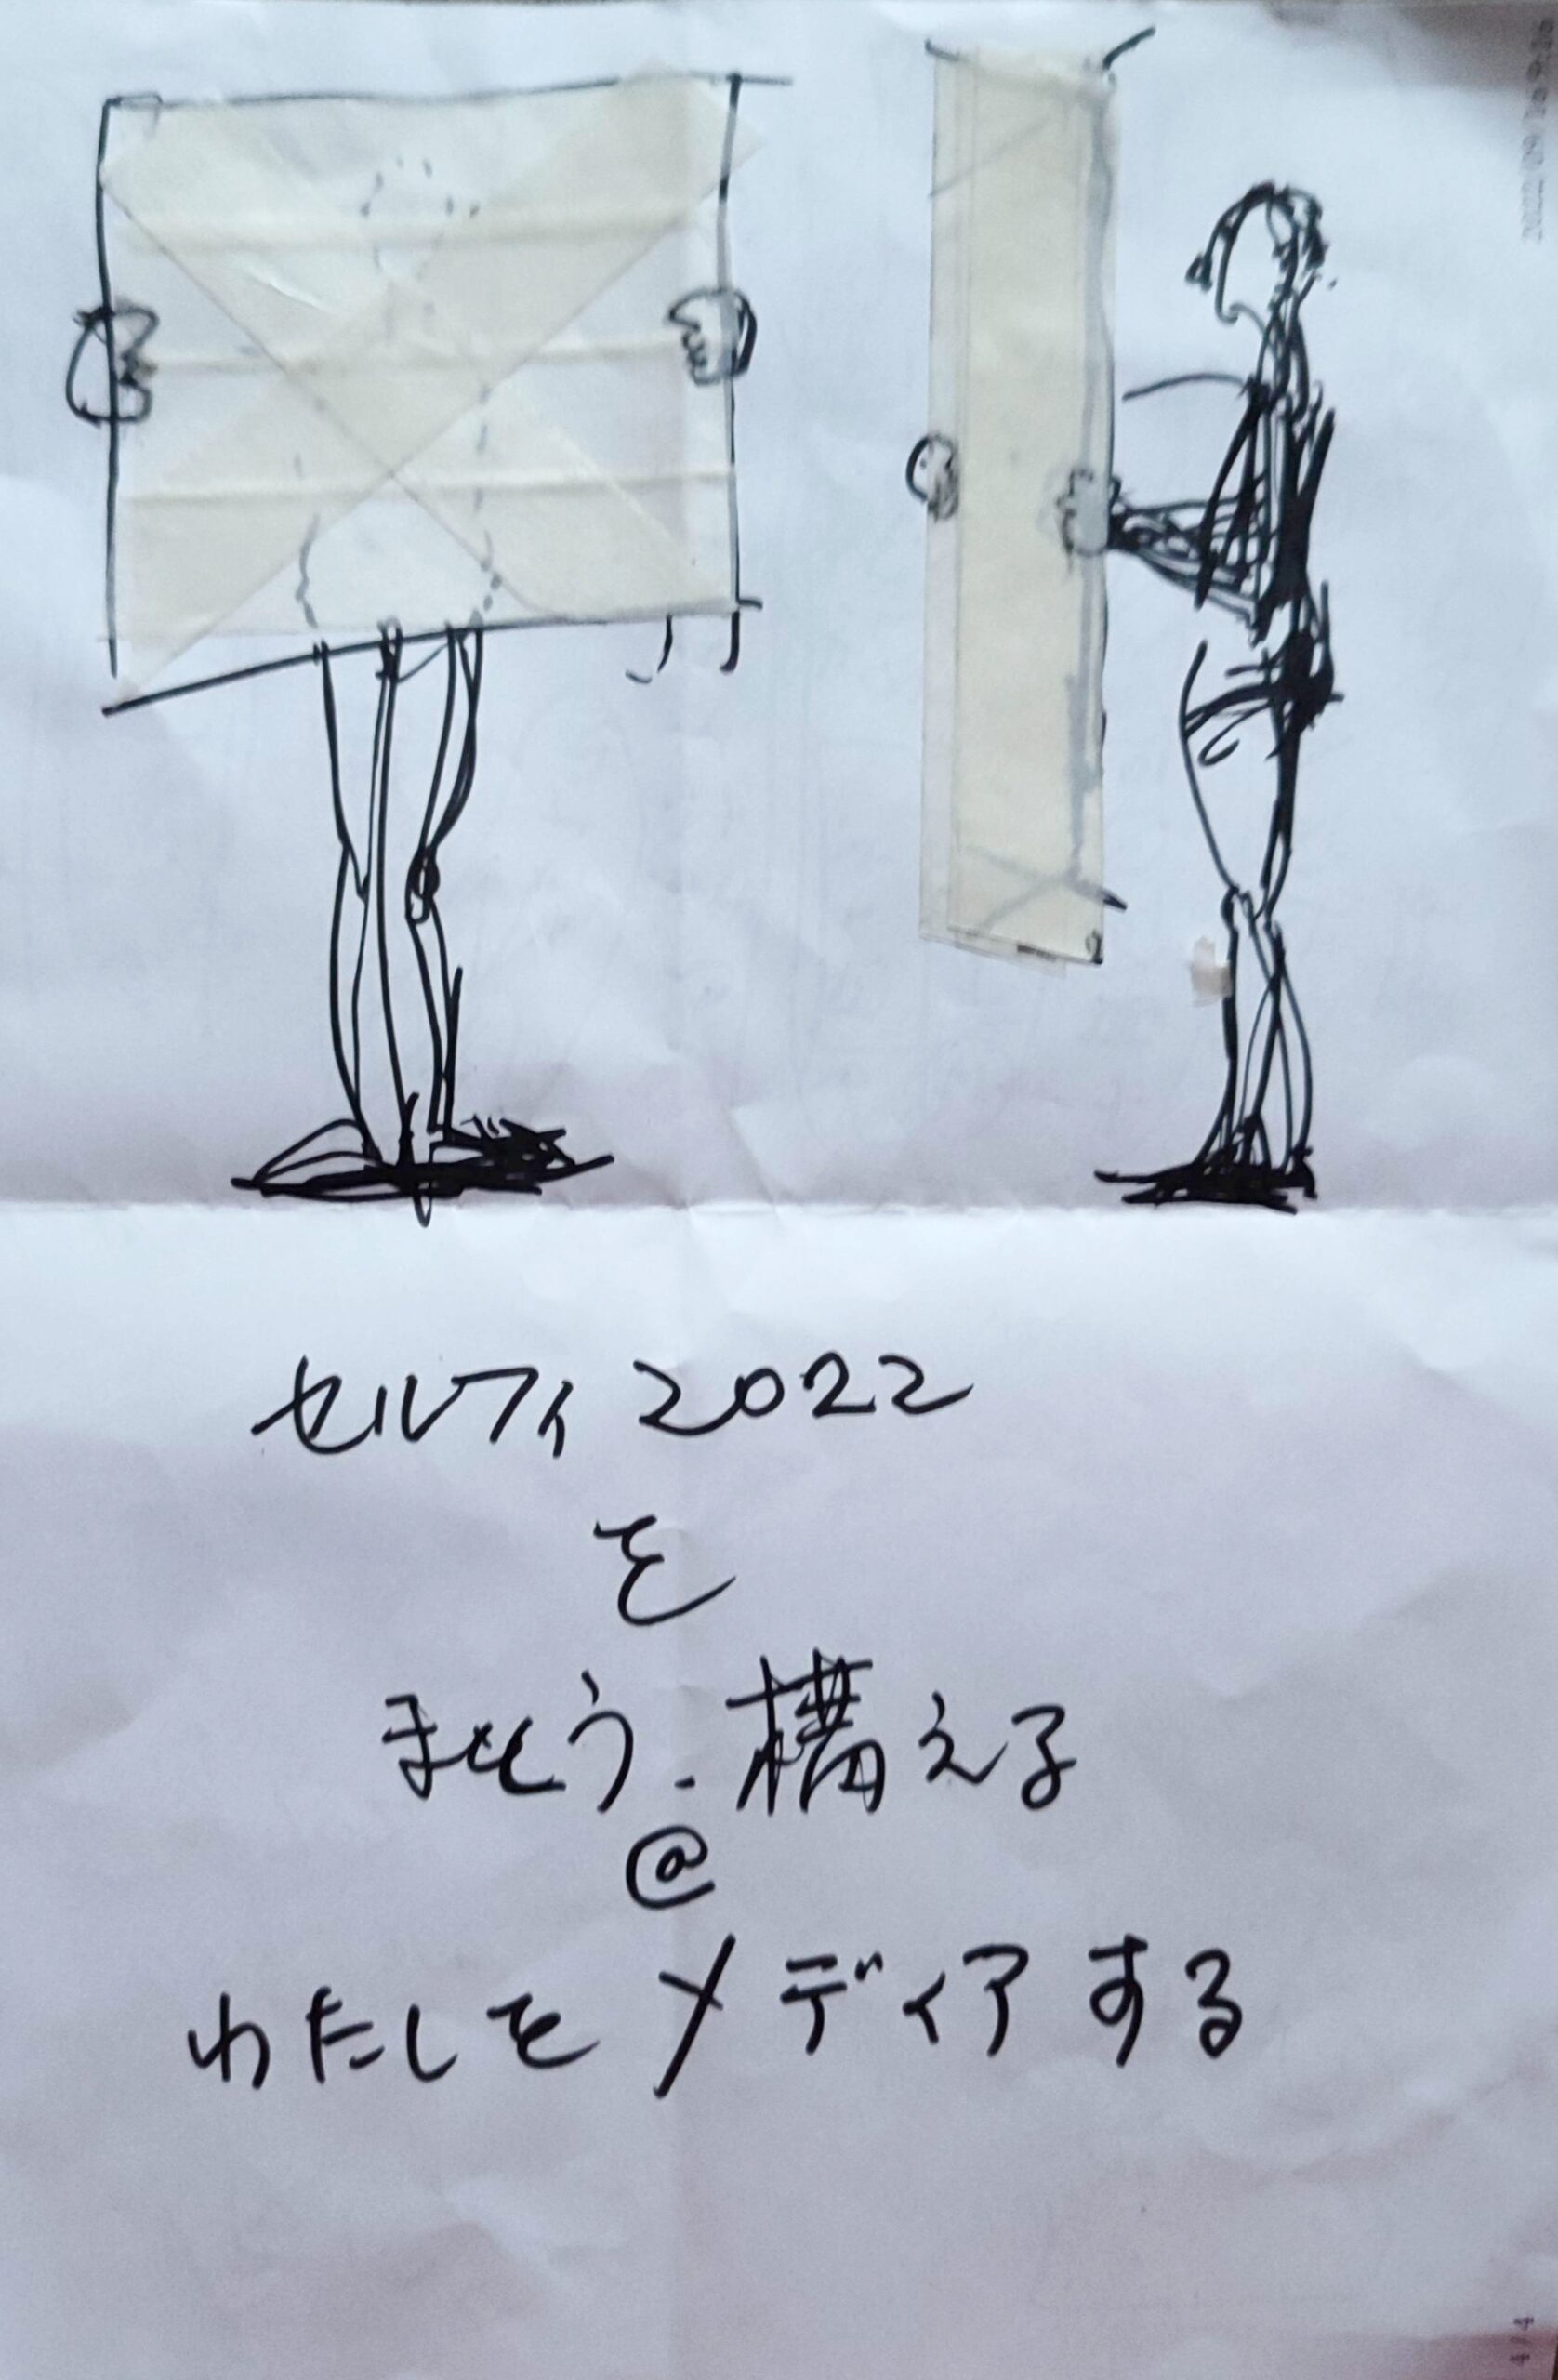 セルフィ2022
を
まとう.構える
@
わたしをメディアする